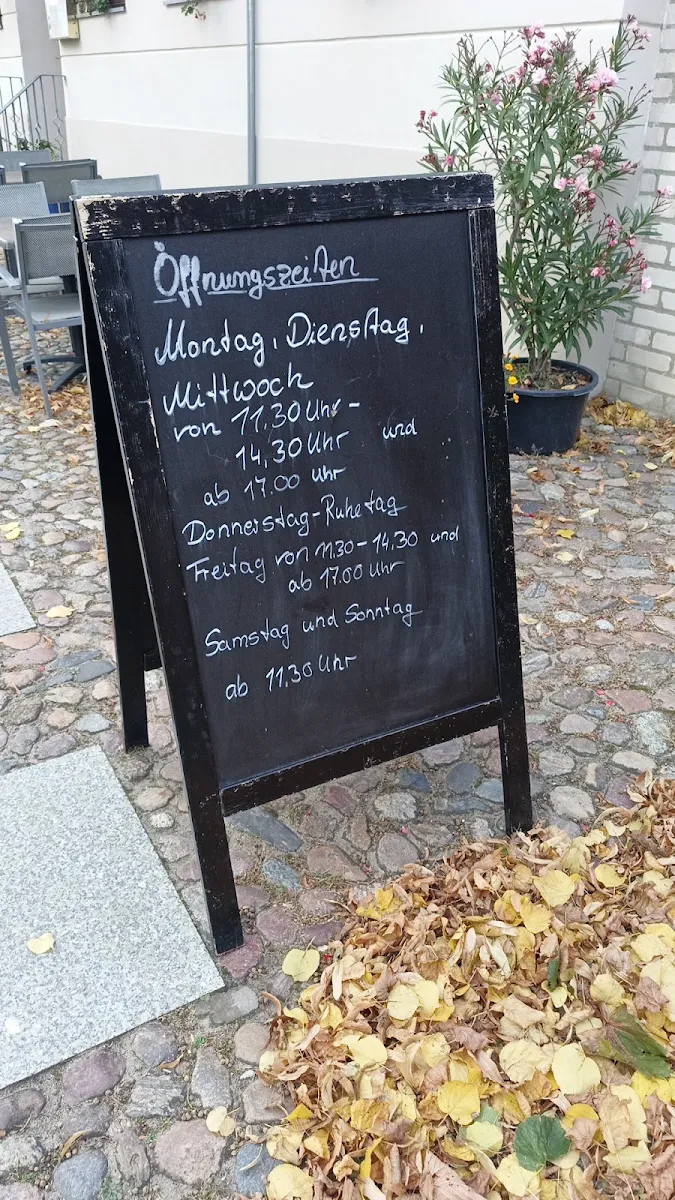 Öffnungszeiten
Montag, Dienstag,
Mittwoch
von 11,30 Uhr -
14,30 Uhr und
ab 17.00 Uhr
Donnerstag-Ruhetag
Freitag von 11.30-14.30 und
ab 17.00 Uhr
Samstag und Sonntag
ab 11,30 Uhr